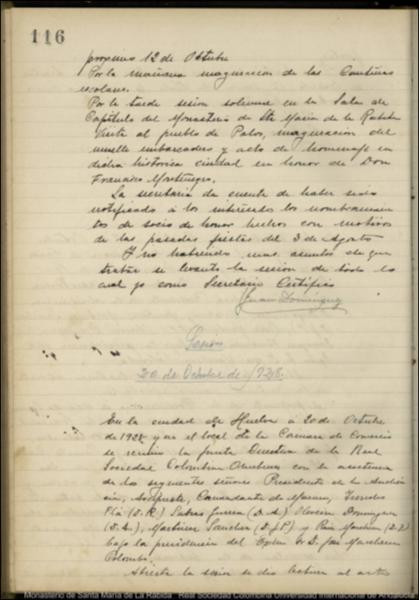 116
proximo 12 de Octubre
Por la mañana inauguracion de las Cantinas
escolares.
Por la tarde sesion solemne en la Sala de
Capitulo del Monasterio de Sta Maria de la Rabida
Visita al pueblo de Palos, inauguracion del
muelle embarcadero y acto de homenaje en
dicha historica ciudad en honor de Don
Francisco Montenegro.
La secretaria da cuenta de haber sido
notificado á los interesados los nombramien
tos de socio de honor hechos con motivo
de las pasadas fiestas del 3 de Agosto
Y no habiendo mas asuntos de que
tratar se levanta la sesion de todo lo
cual yo como Secretario Certifico
Juan Dominguez
Sesion
20 de Octubre de 1928.
En la ciudad de Huelva á 20 de Octubre
de 1928 y en el local de la Camara de Comercio
se reunio la Junta Directiva de la Real
Sociedad Colombina Onubense con la asistencia
de los siguientes señores Presidente de la
Comandante de Marina,
Pla (D. R.) Oliveira Dominguez
Martinez Sanchez (D. J. P.) y Marchena
bajo la presidencia del D. Jose Marchena
Colombo.
Abierta la sesion se dio lectura al acta
Monasterio de Santa María de La Rábida. Real Sociedad Colombina. Universidad Internacional de Andalucía